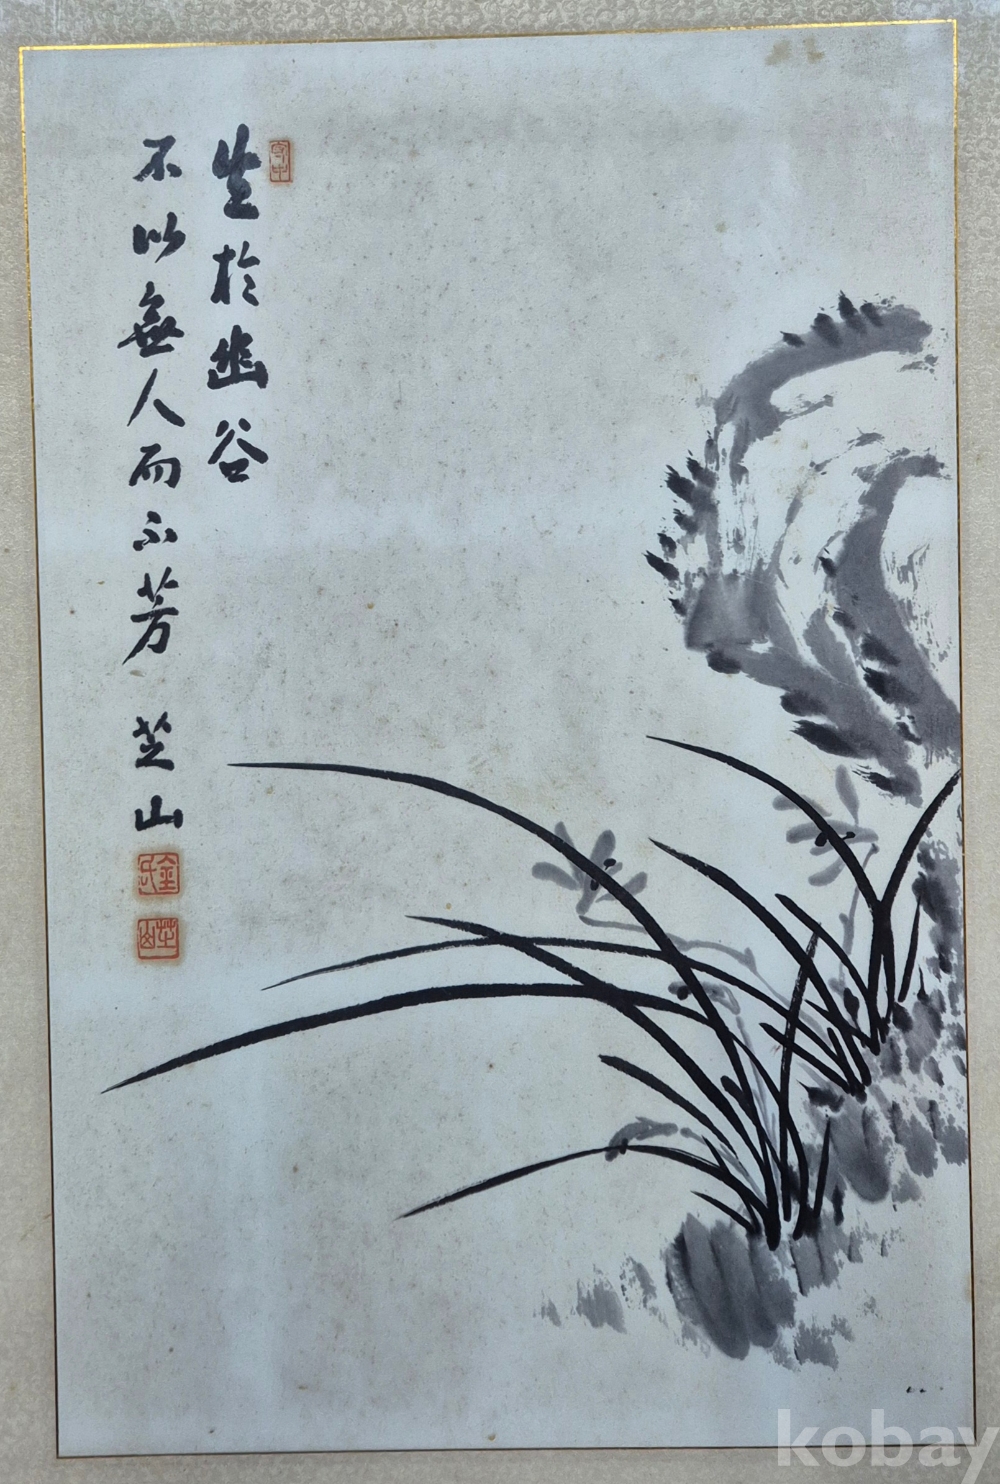 生於幽谷
不以無人而不芳 芝山
金氏
芝山
kobay